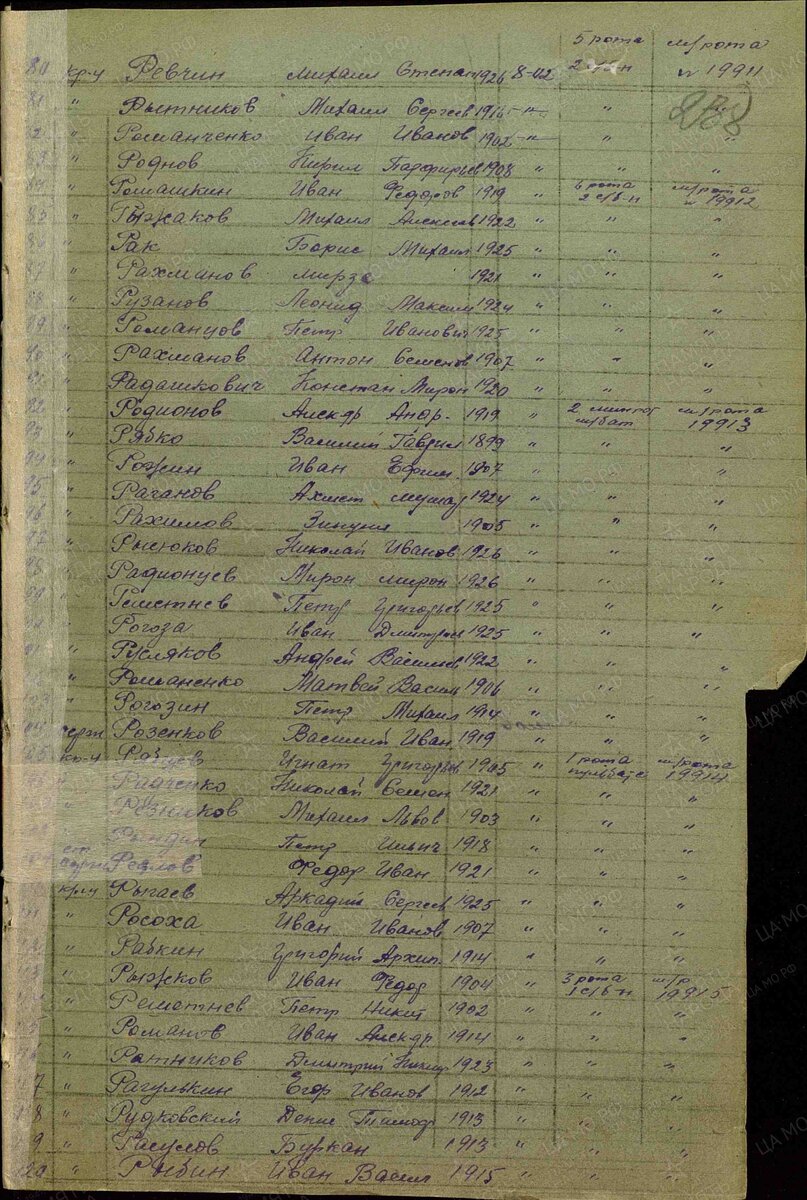 5 рота м/рота
80 кр-ц Ревчин Михаил Степан 1926 8-02 2 с/б-н н 19911
81 " Рытников Михаил Сергеев 1916 -"- " 288
82 " Романченко Иван Иванов 1902 -"- " "
83 " Роднов Кирил Парфирьев 1908 " " "
84 " Ромашкин Иван Федоров 1919 " 6 рота 2 с/б-н м/рота н 19912
85 " Рыжаков Михаил Алексеев 1922 " " "
86 " Рак Борис Михаил 1925 " " "
87 " Рахманов Мирзо 1921 " " "
88 " Рузанов Леонид Максим 1924 " " "
89 " Романцов Петр Иванович 1925 " " "
90 " Рахманов Антон Семенов 1907 " " "
91 " Радашкович Констан Мирон 1920 " " "
92 " Родионов Алекс-др Андр. 1919 " 2 м/бат м/рота 19913
93 " Рябко Василий Гаврил 1899 " " "
94 " Рожин Иван Ефим. 1907 " "
95 " Раганов Ахмет 1924 " " "
96 " Рахимов 1905 " " "
97 " Рысюков Николай Иванов 1926 " " "
98 " Радионцев Мирон Мирон 1926 " " "
99 " Реметнев Петр Григорьев 1925 " " "
" Рогоза Иван Дмитриев 1925 " " "
" Русляков Андрей Васильев 1922 " " "
" Романенко Матвей Василь 1906 " " "
" Рогозин Петр Михаил 1914 " " "
Розенков Василий Иван 1919 " " "
кр-ц Игнат Григорьев 1905 " 1 рота м/рота 19914
" Радченко Николай Семен 1921 " " "
" Резников Михаил Львов 1903 " " "
Рындин Петр Ильич 1918 " " "
ст. серж Реалов Федор Иван 1921 " " "
кр-ц Рыгаев Аркадий Сергеев 1925 " " "
" Росоха Иван Иванов 1907 " " "
" Рабкин Григорий Архип. 1914 " " "
" Рыжков Иван Федор 1904 " 3 рота 1 с/б-н м/р. 19915
" Реметнев Петр Никит 1902 " " "
" Романов Иван Алекс-др 1914 " " "
" Ратников Дмитрий 1923 " " "
7 " Рагулькин Егор Иванов 1912 " " "
8 " Рудковский Денис Тимоф 1913 " " "
9 " Расулов Буркан 1913 " " "
20 " Рыбин Иван Васил 1915 " " "